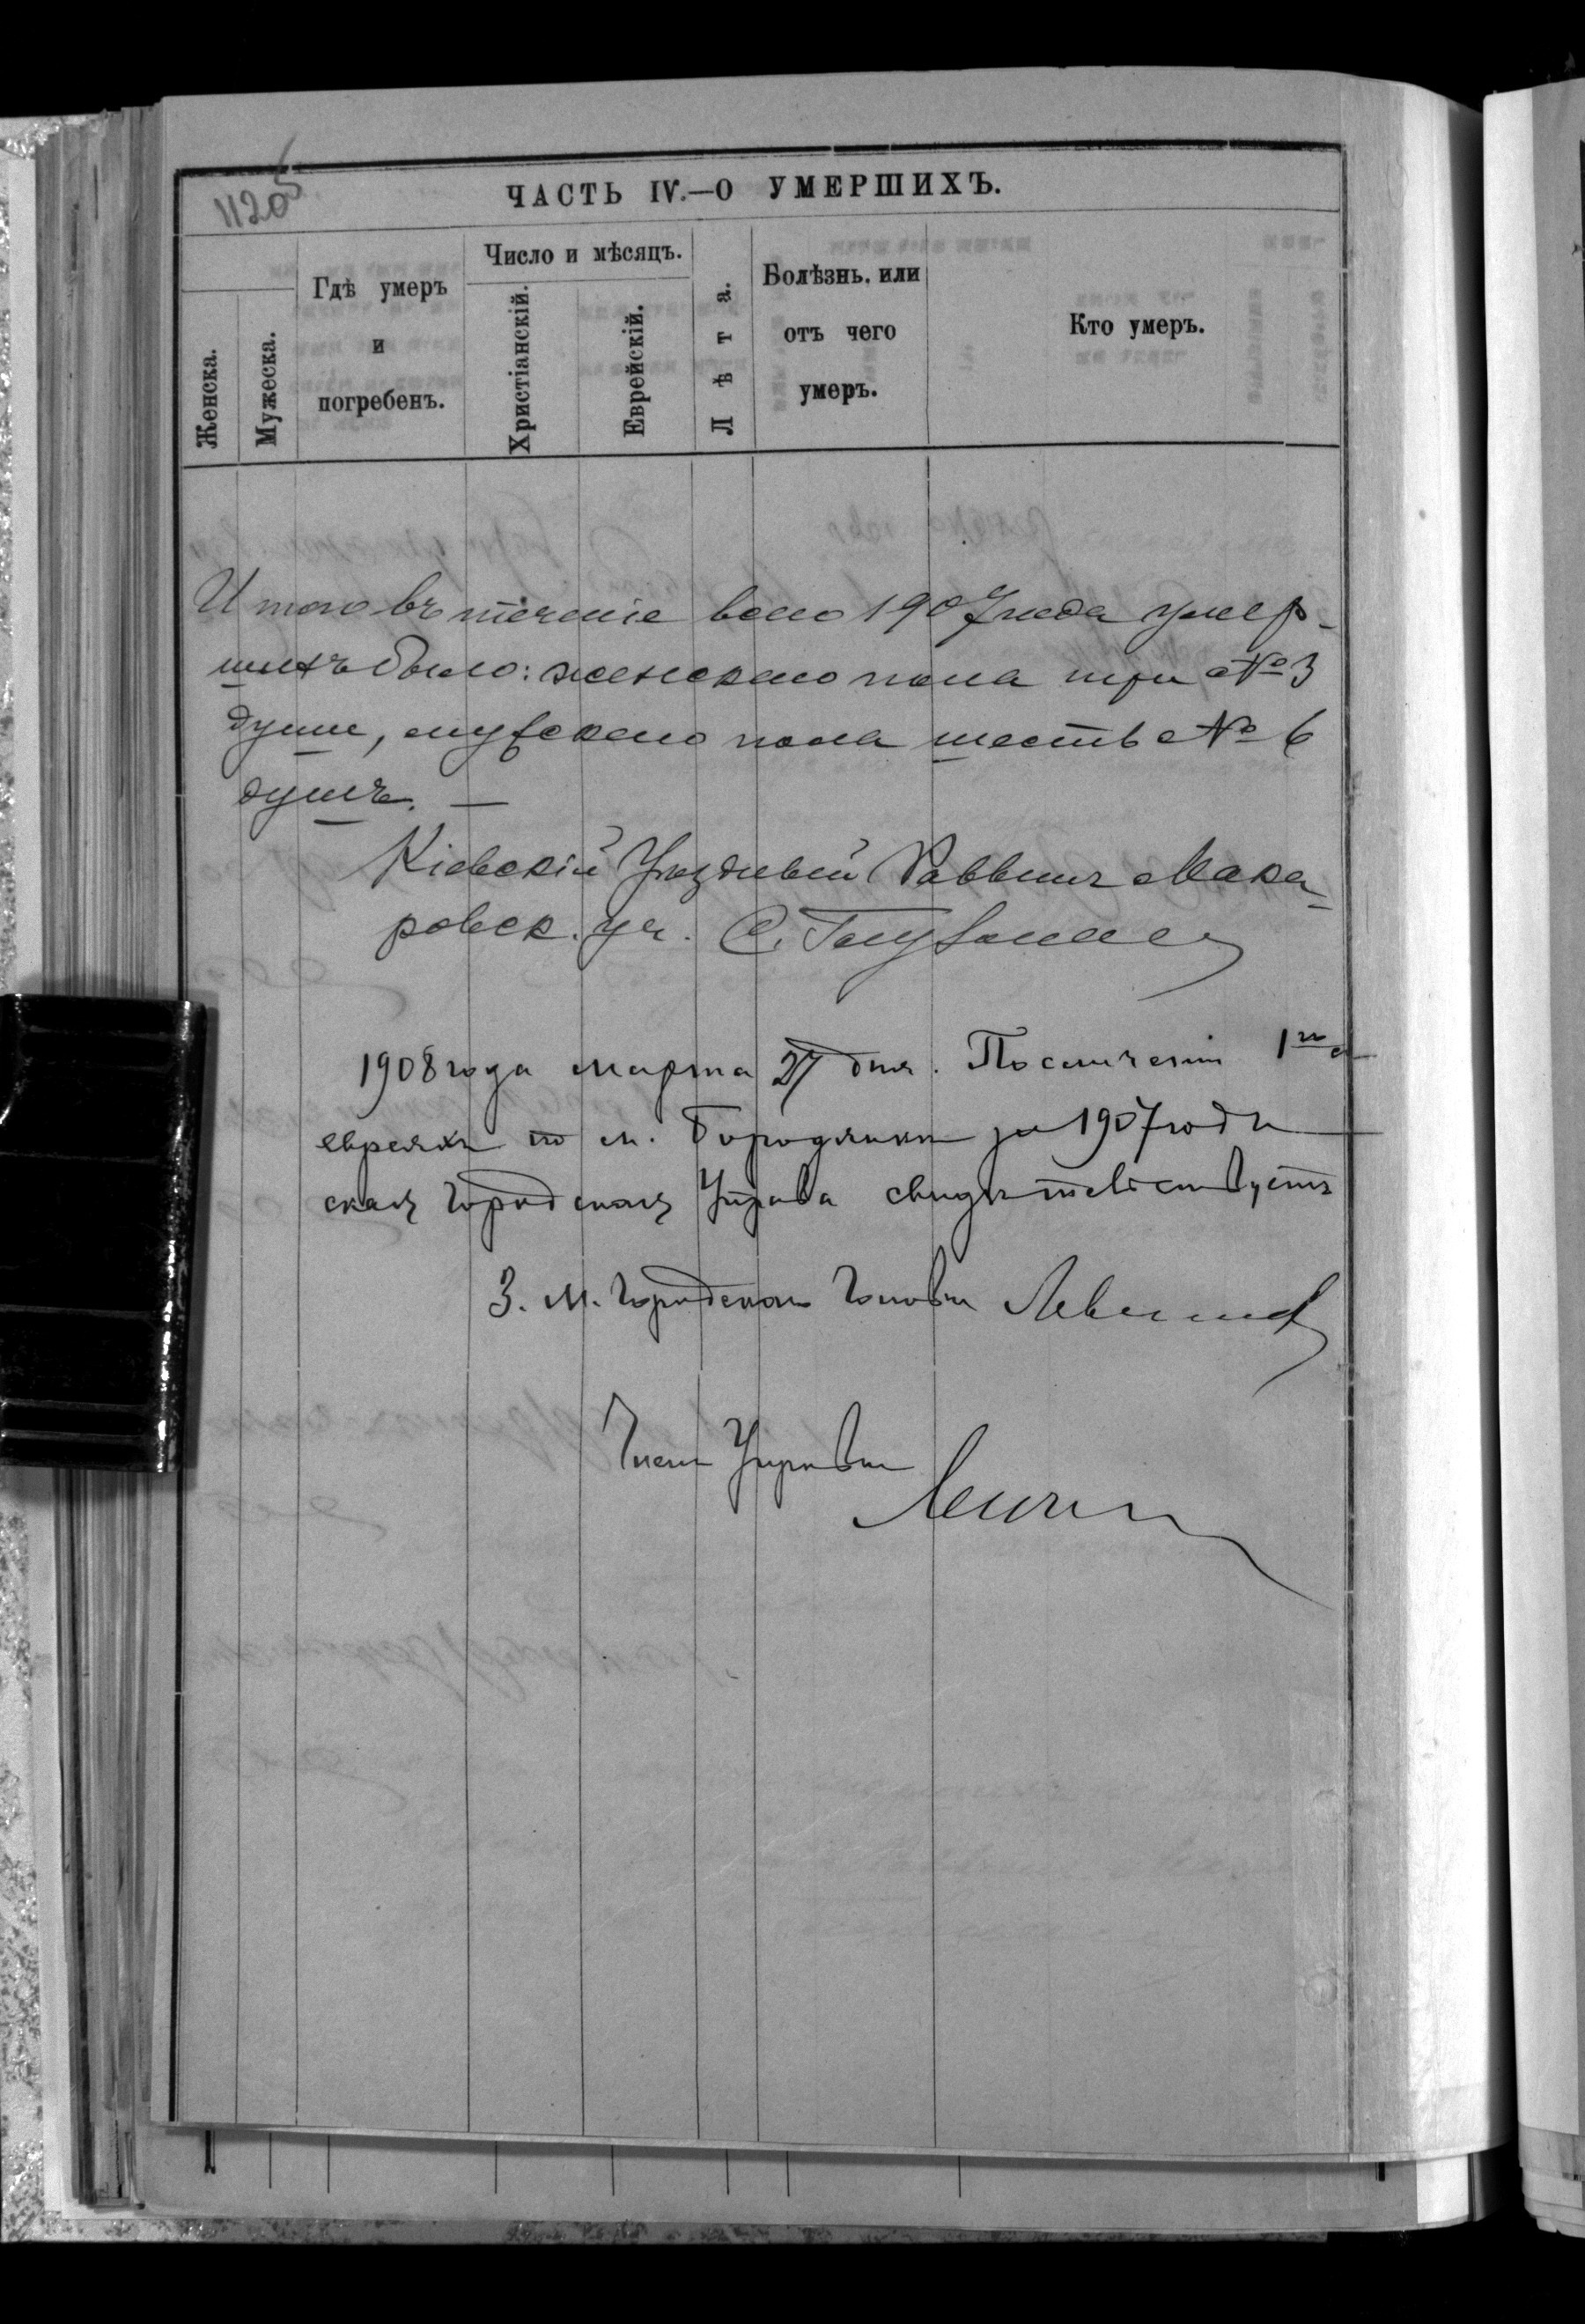 1120
ЧАСТЬ IV.—О УМЕРШИХЪ.
Женска.
Мужеска.
Гдѣ умеръ
и
погребенъ.
Число и мѣсяцъ.
Христіанскій.
Еврейскій.
Лѣта.
Болѣзнь, или
отъ чего
умеръ.
Кто умеръ.
Итого въ теченіе всего 1907 года умер-
шихъ было: женскаго пола три № 3
души, мужскаго пола шесть № 6
душъ. —
Кіевскій Уѣздный Раввинъ Мака-
ровск. уч. С.
1908 года марта 27 дня. По сличеніи 1го
евреяхъ по м. Бородянкѣ за 1907 годъ
ская Городская Управа свидѣтельствуетъ
З. М. Городского Головы
Членъ Управы